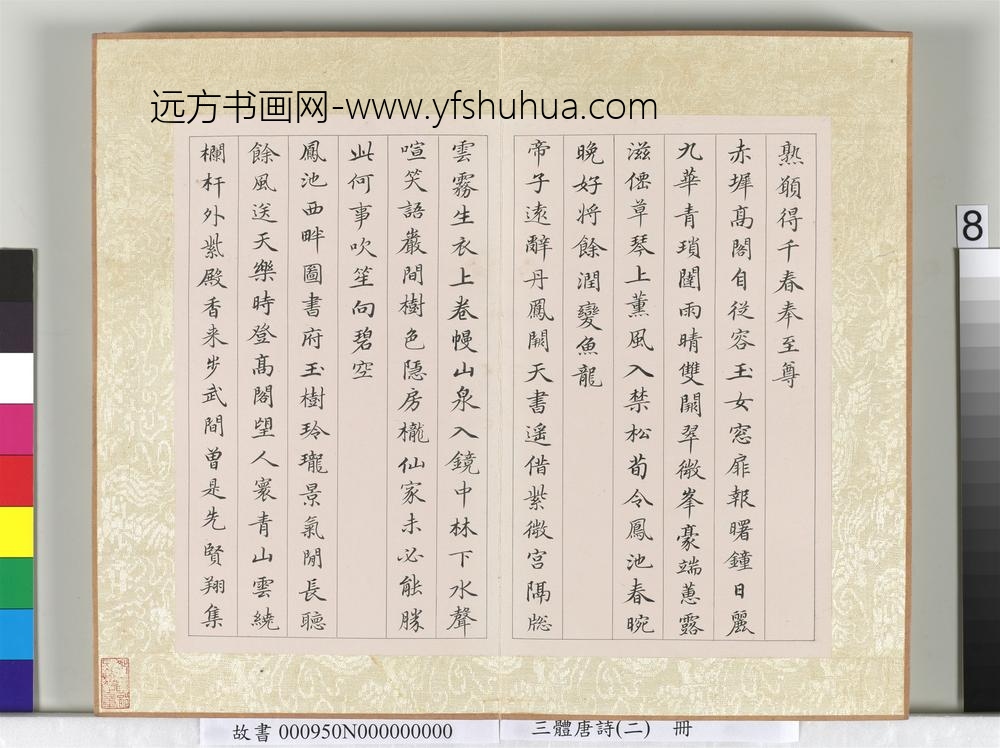 远方书画网-www.yfshuhua.com
熟願得千春奉至尊
赤墀髙閣自從容玉女窓扉報曙鐘日麗
九華青瑣闥雨晴雙闕翠微峯豪端蕙露
滋僊草琴上薰風入禁松荀令鳳池春晼
晚好将餘潤變魚龍
帝子遠辭丹鳳闕天書遥借紫微宫隔牕
雲霧生衣上卷幔山泉入鏡中林下水聲
喧笑語巖間樹色隱房櫳仙家未必能勝
此何事吹笙向碧空
鳳池西畔圖書府玉樹玲瓏景氣閒長聽
餘風送天樂時登髙閣望人寰青山雲繞
欄杆外紫殿香来步武間曽是先賢翔集
8
故書 000950N000000000
三體唐詩(二) 冊